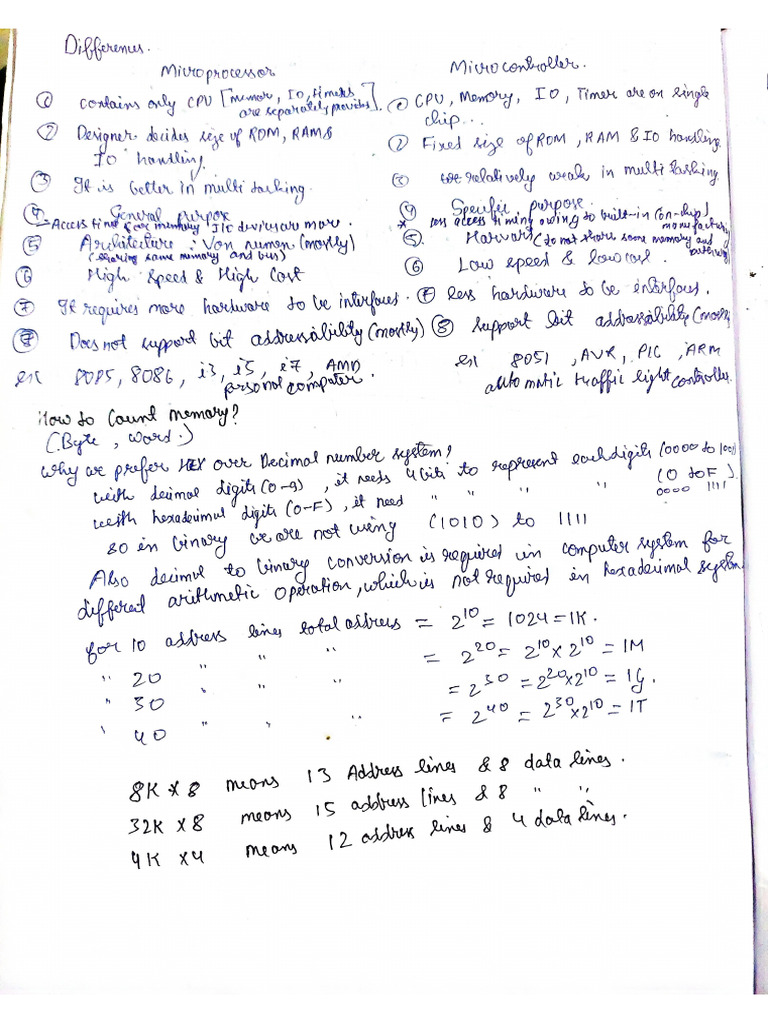 Differences.
Microprocessor
Microcontroller.
① contains only CPU [memor, IO, timers are separately provided].
① CPU, Memory, IO, Timer are on single chip...
② Designer decides size of ROM, RAM &
IO handling.
② Fixed size of ROM, RAM & IO handling
③ It is better in multi tasking.
③ relatively weak in multi tasking
④ General purpose
- Access time for memory I/O devices are more.
④ Specific purpose.
* less access timing owing to built-in (on-chip) manufacturing
⑤ Architecture : Von numen (mostly)
(sharing same memory and bus)
⑤. Harvard (do not share same memory and
⑥ High Speed & High Cost
⑥ Low speed & low cost.
⑦ It requires more hardware to be interfaces.
⑦ less hardware to be interfaces.
⑧ Does not support bit addressability (mostly)
⑧ support bit addressability (mostly
ex 8085, 8086, i3, i5, i7, AMD
personal computer.
ex 8051, AVR, PIC, ARM
automatic traffic light controller.
How to Count memory?
(Byte, word.)
Why we prefer HEX over Decimal number system?
with decimal digits (0-9), it needs 4 bits to represent each digits (0000 to 1001)
with hexadecimal digits (0-F), it need " " " " " (0 to F)
0000 1111
so in binary we are not using (1010) to 1111
Also decimal to binary conversion is required in computer system for
different arithmetic operation, which is not required in hexadecimal system
for 10 address lines total address = 2¹⁰ = 1024 = 1K.
" 20 " " " = 2²⁰ = 2¹⁰ x 2¹⁰ = 1M
" 30 " " " = 2³⁰ = 2²⁰x2¹⁰ = 1G.
" 40 " " " = 2⁴⁰ = 2³⁰x2¹⁰ = 1T
8K x 8 means 13 Address lines & 8 data lines.
32K x 8 means 15 address lines & 8 " "
4K x4 means 12 address lines & 4 data lines.